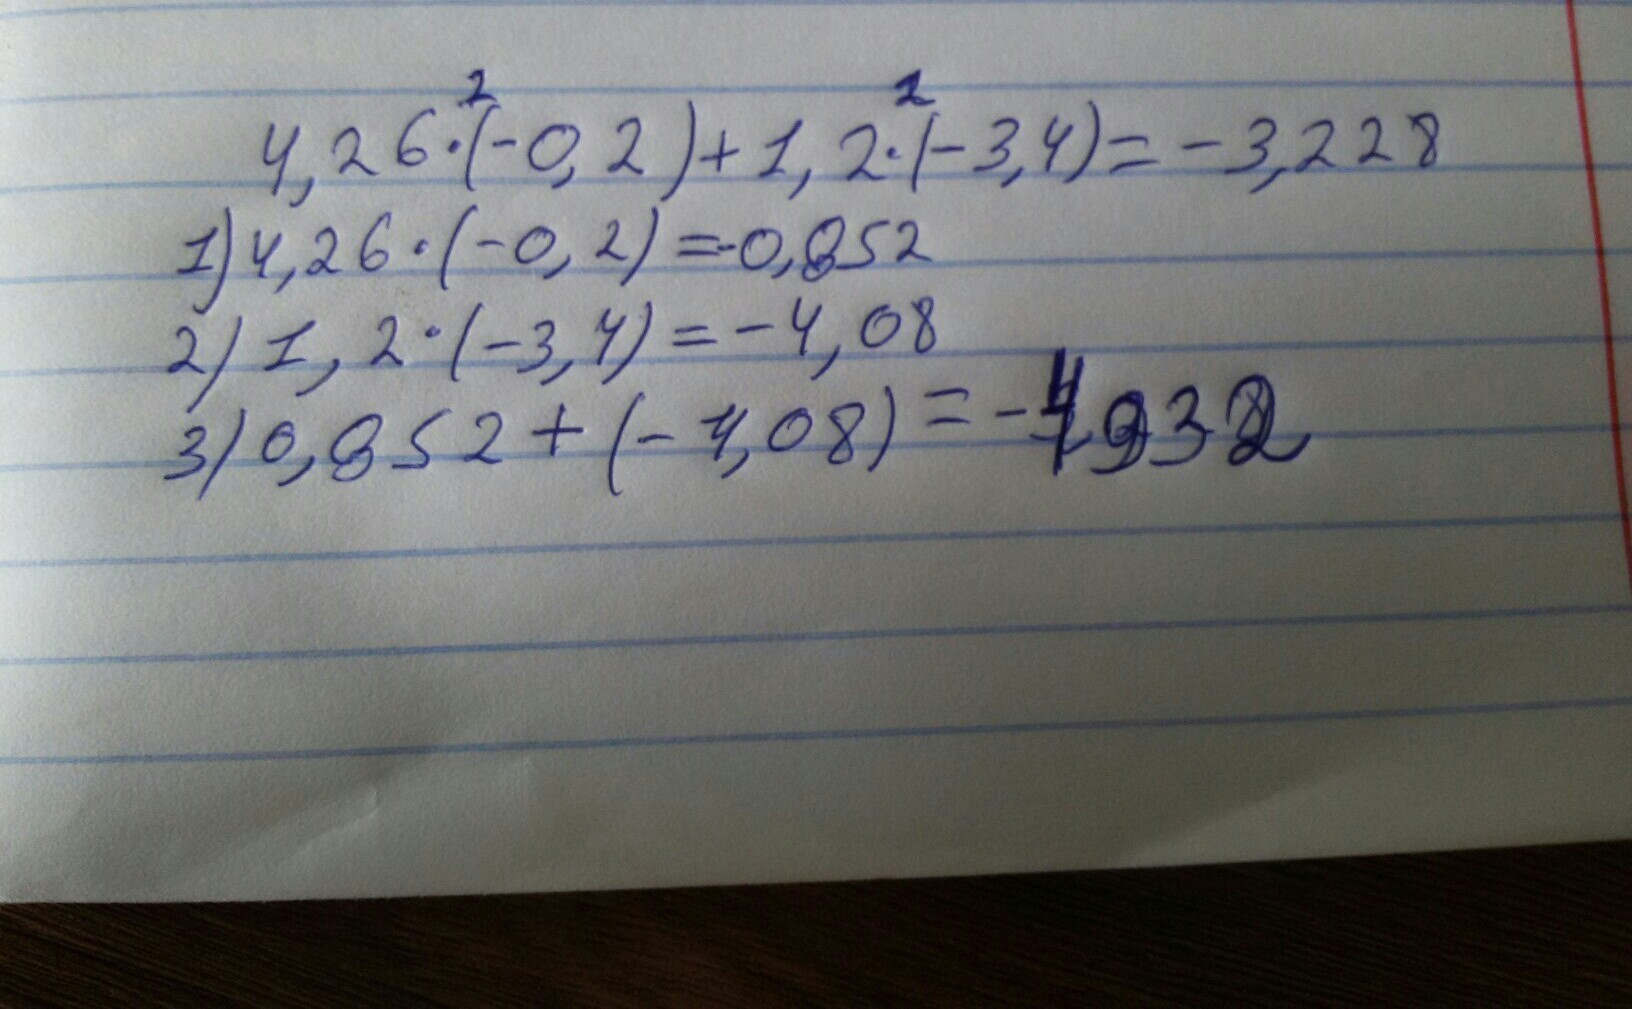 2 2
4,26·(-0,2)+1,2·(-3,4)=-3,228
1)4,26·(-0,2)=-0,852
2) 1,2·(-3,4)=-4,08
3)0,852+(-4,08)=-4932